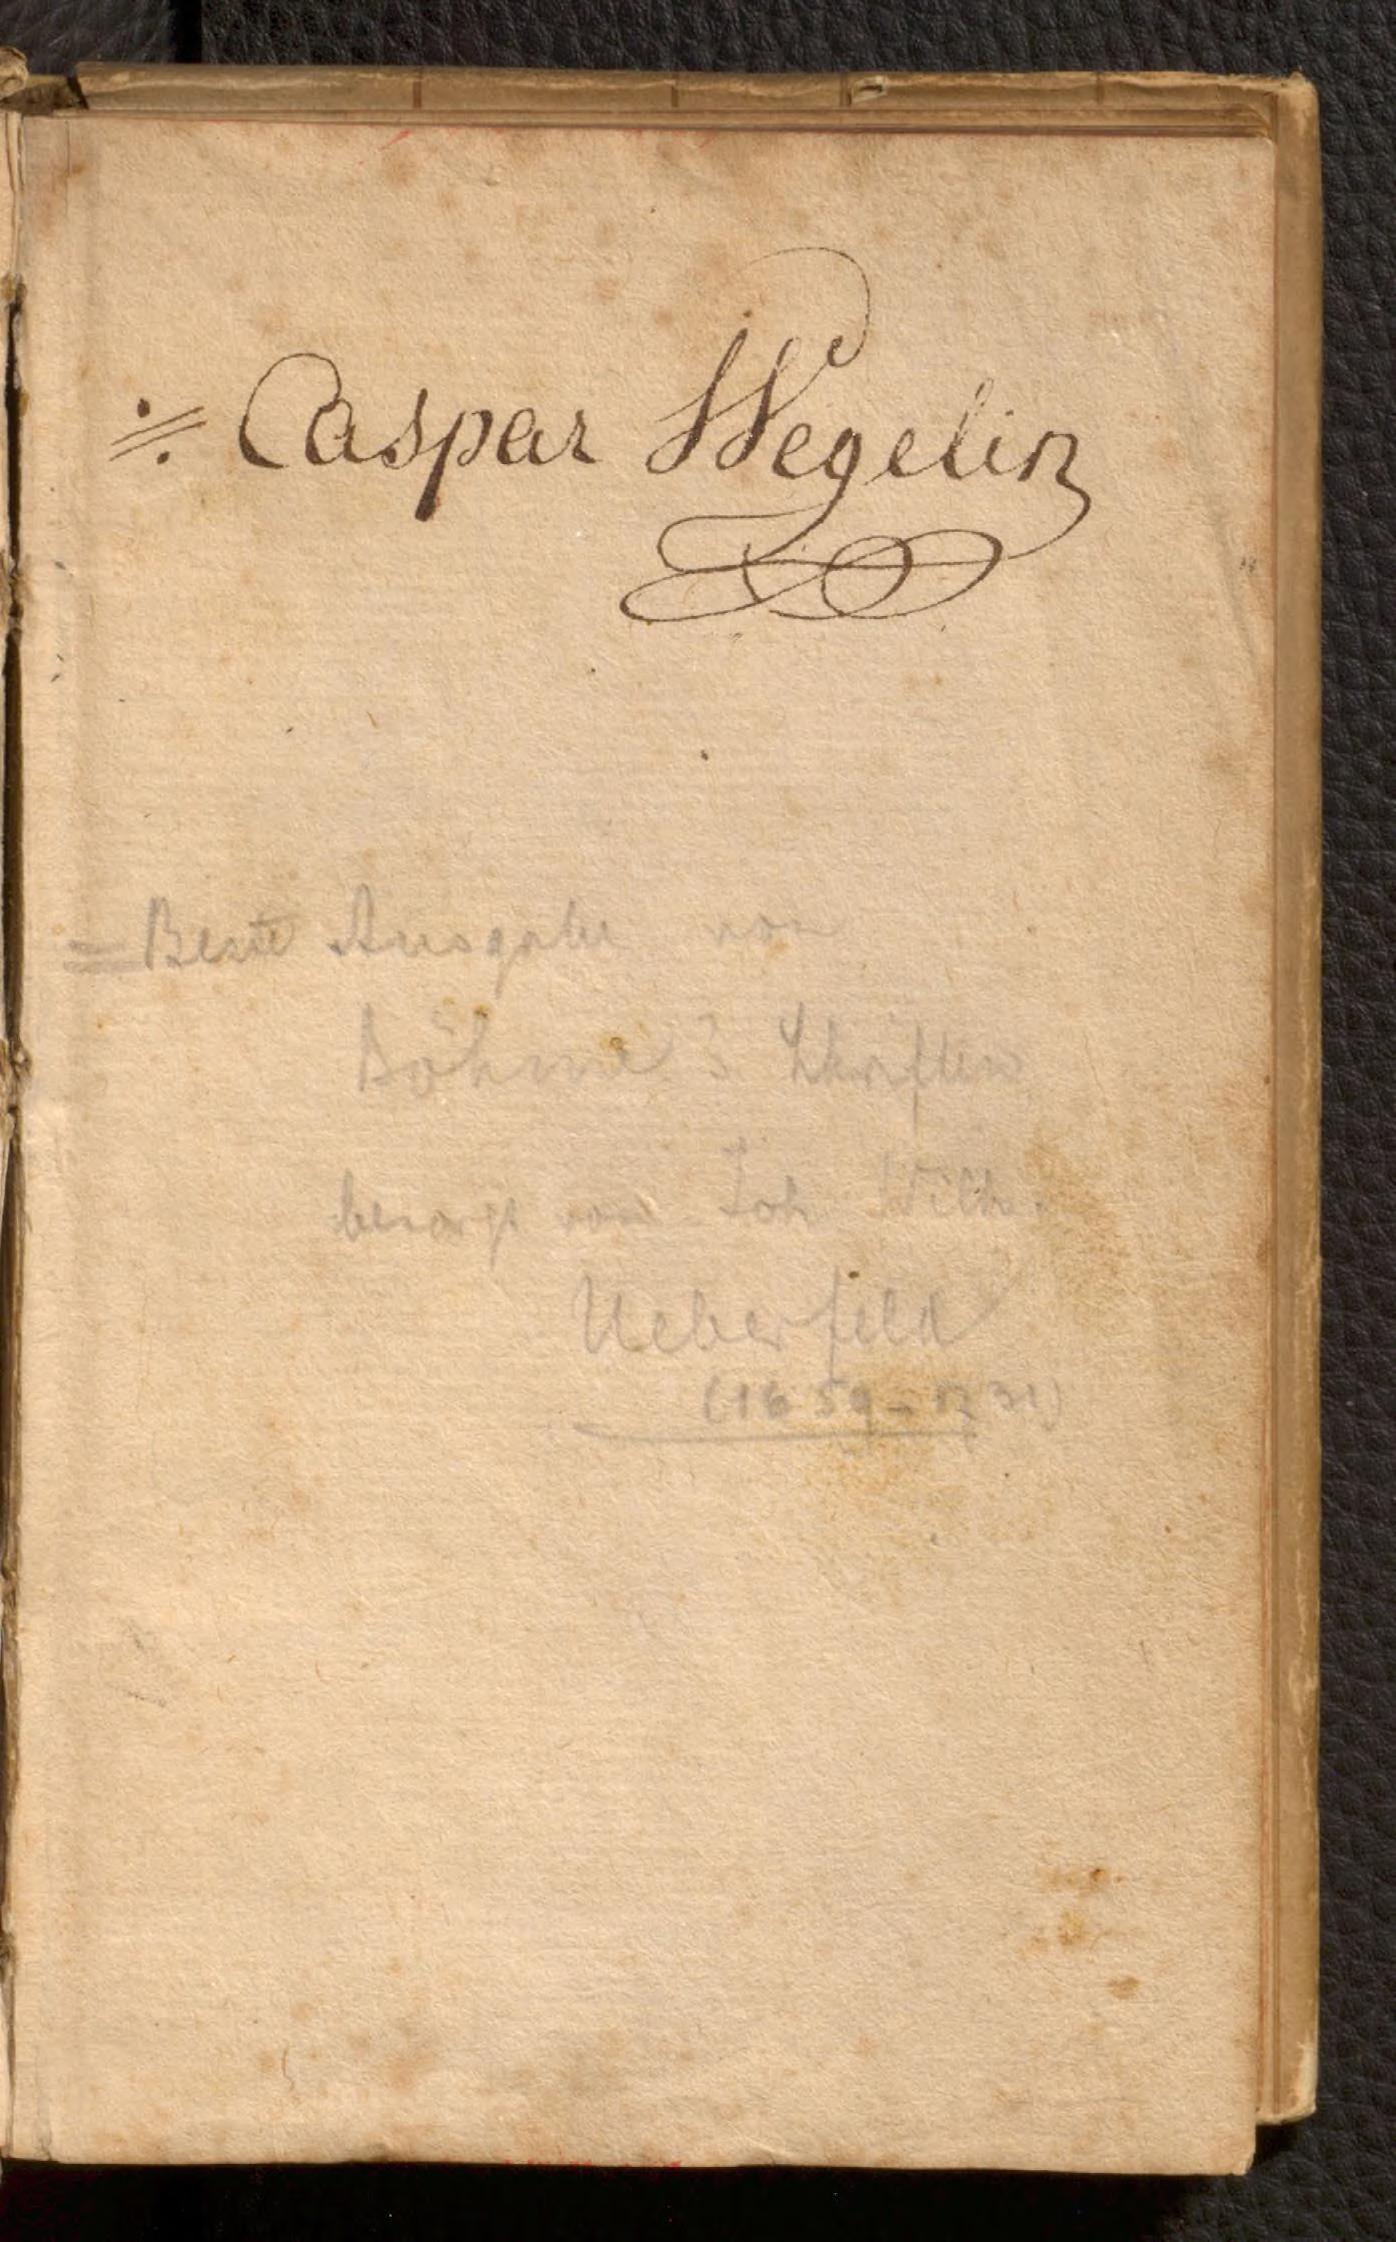 Caspar Wegelin
= Beste Ausgabe von
Böhme's Schriften
besorgt von Joh Wilh.
Ueberfeld
(1659-1731)